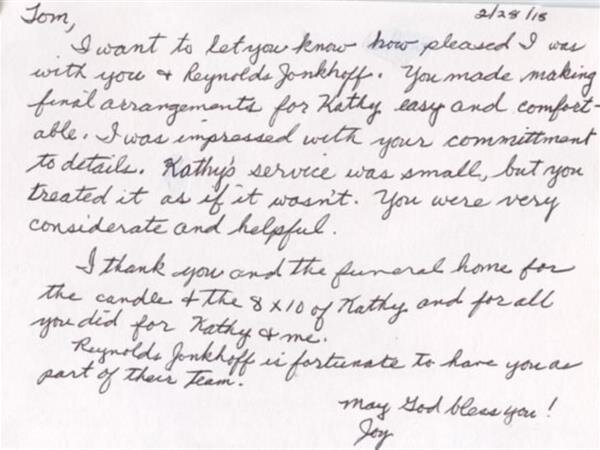 2/28/18
Tom,
I want to let you know how pleased I was
with you & Reynolds Jonkhoff. You made making
final arrangements for Kathy easy and comfort-
able. I was impressed with your committment
to details. Kathy's service was small, but you
treated it as if it wasn't. You were very
considerate and helpful.
I thank you and the funeral home for
the candle & the 8x10 of Kathy and for all
you did for Kathy & me.
Reynolds Jonkhoff is fortunate to have you as
part of their team.
May God bless you!
Joy